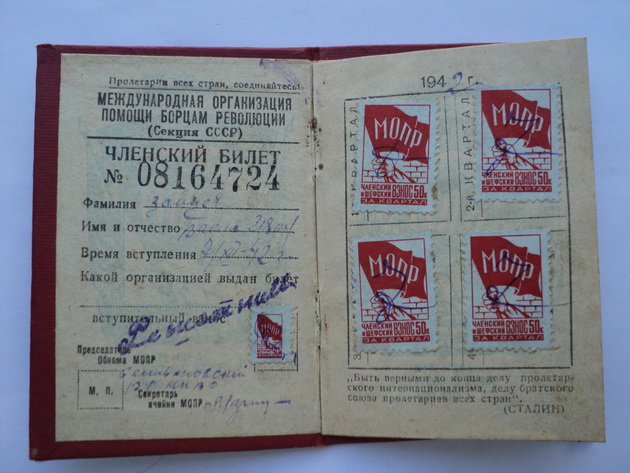 Пролетарии всех стран, соединяйтесь!
МЕЖДУНАРОДНАЯ ОРГАНИЗАЦИЯ
ПОМОЩИ БОРЦАМ РЕВОЛЮЦИИ
(Секция СССР)
ЧЛЕНСКИЙ БИЛЕТ
№ 08164724
Фамилия
Имя и отчество
Время вступления
Какой организацией выдан билет
вступительный взнос
Председатель
Обкома МОПР
М. П.
Секретарь
ячейки МОПР
1942 г.
КВАРТАЛ
МОПР
ЧЛЕНСКИЙ
И ШЕФСКИЙ ВЗНОС 50к
ЗА КВАРТАЛ
2-й КВАРТАЛ
МОПР
ЧЛЕНСКИЙ
И ШЕФСКИЙ ВЗНОС 50к
ЗА КВАРТАЛ
МОПР
ЧЛЕНСКИЙ
И ШЕФСКИЙ ВЗНОС 50к
ЗА КВАРТАЛ
МОПР
ЧЛЕНСКИЙ
И ШЕФСКИЙ ВЗНОС 50к
ЗА КВАРТАЛ
„Быть верными до конца делу пролетар-
ского интернационализма, делу братского
союза пролетариев всех стран".
(СТАЛИН)